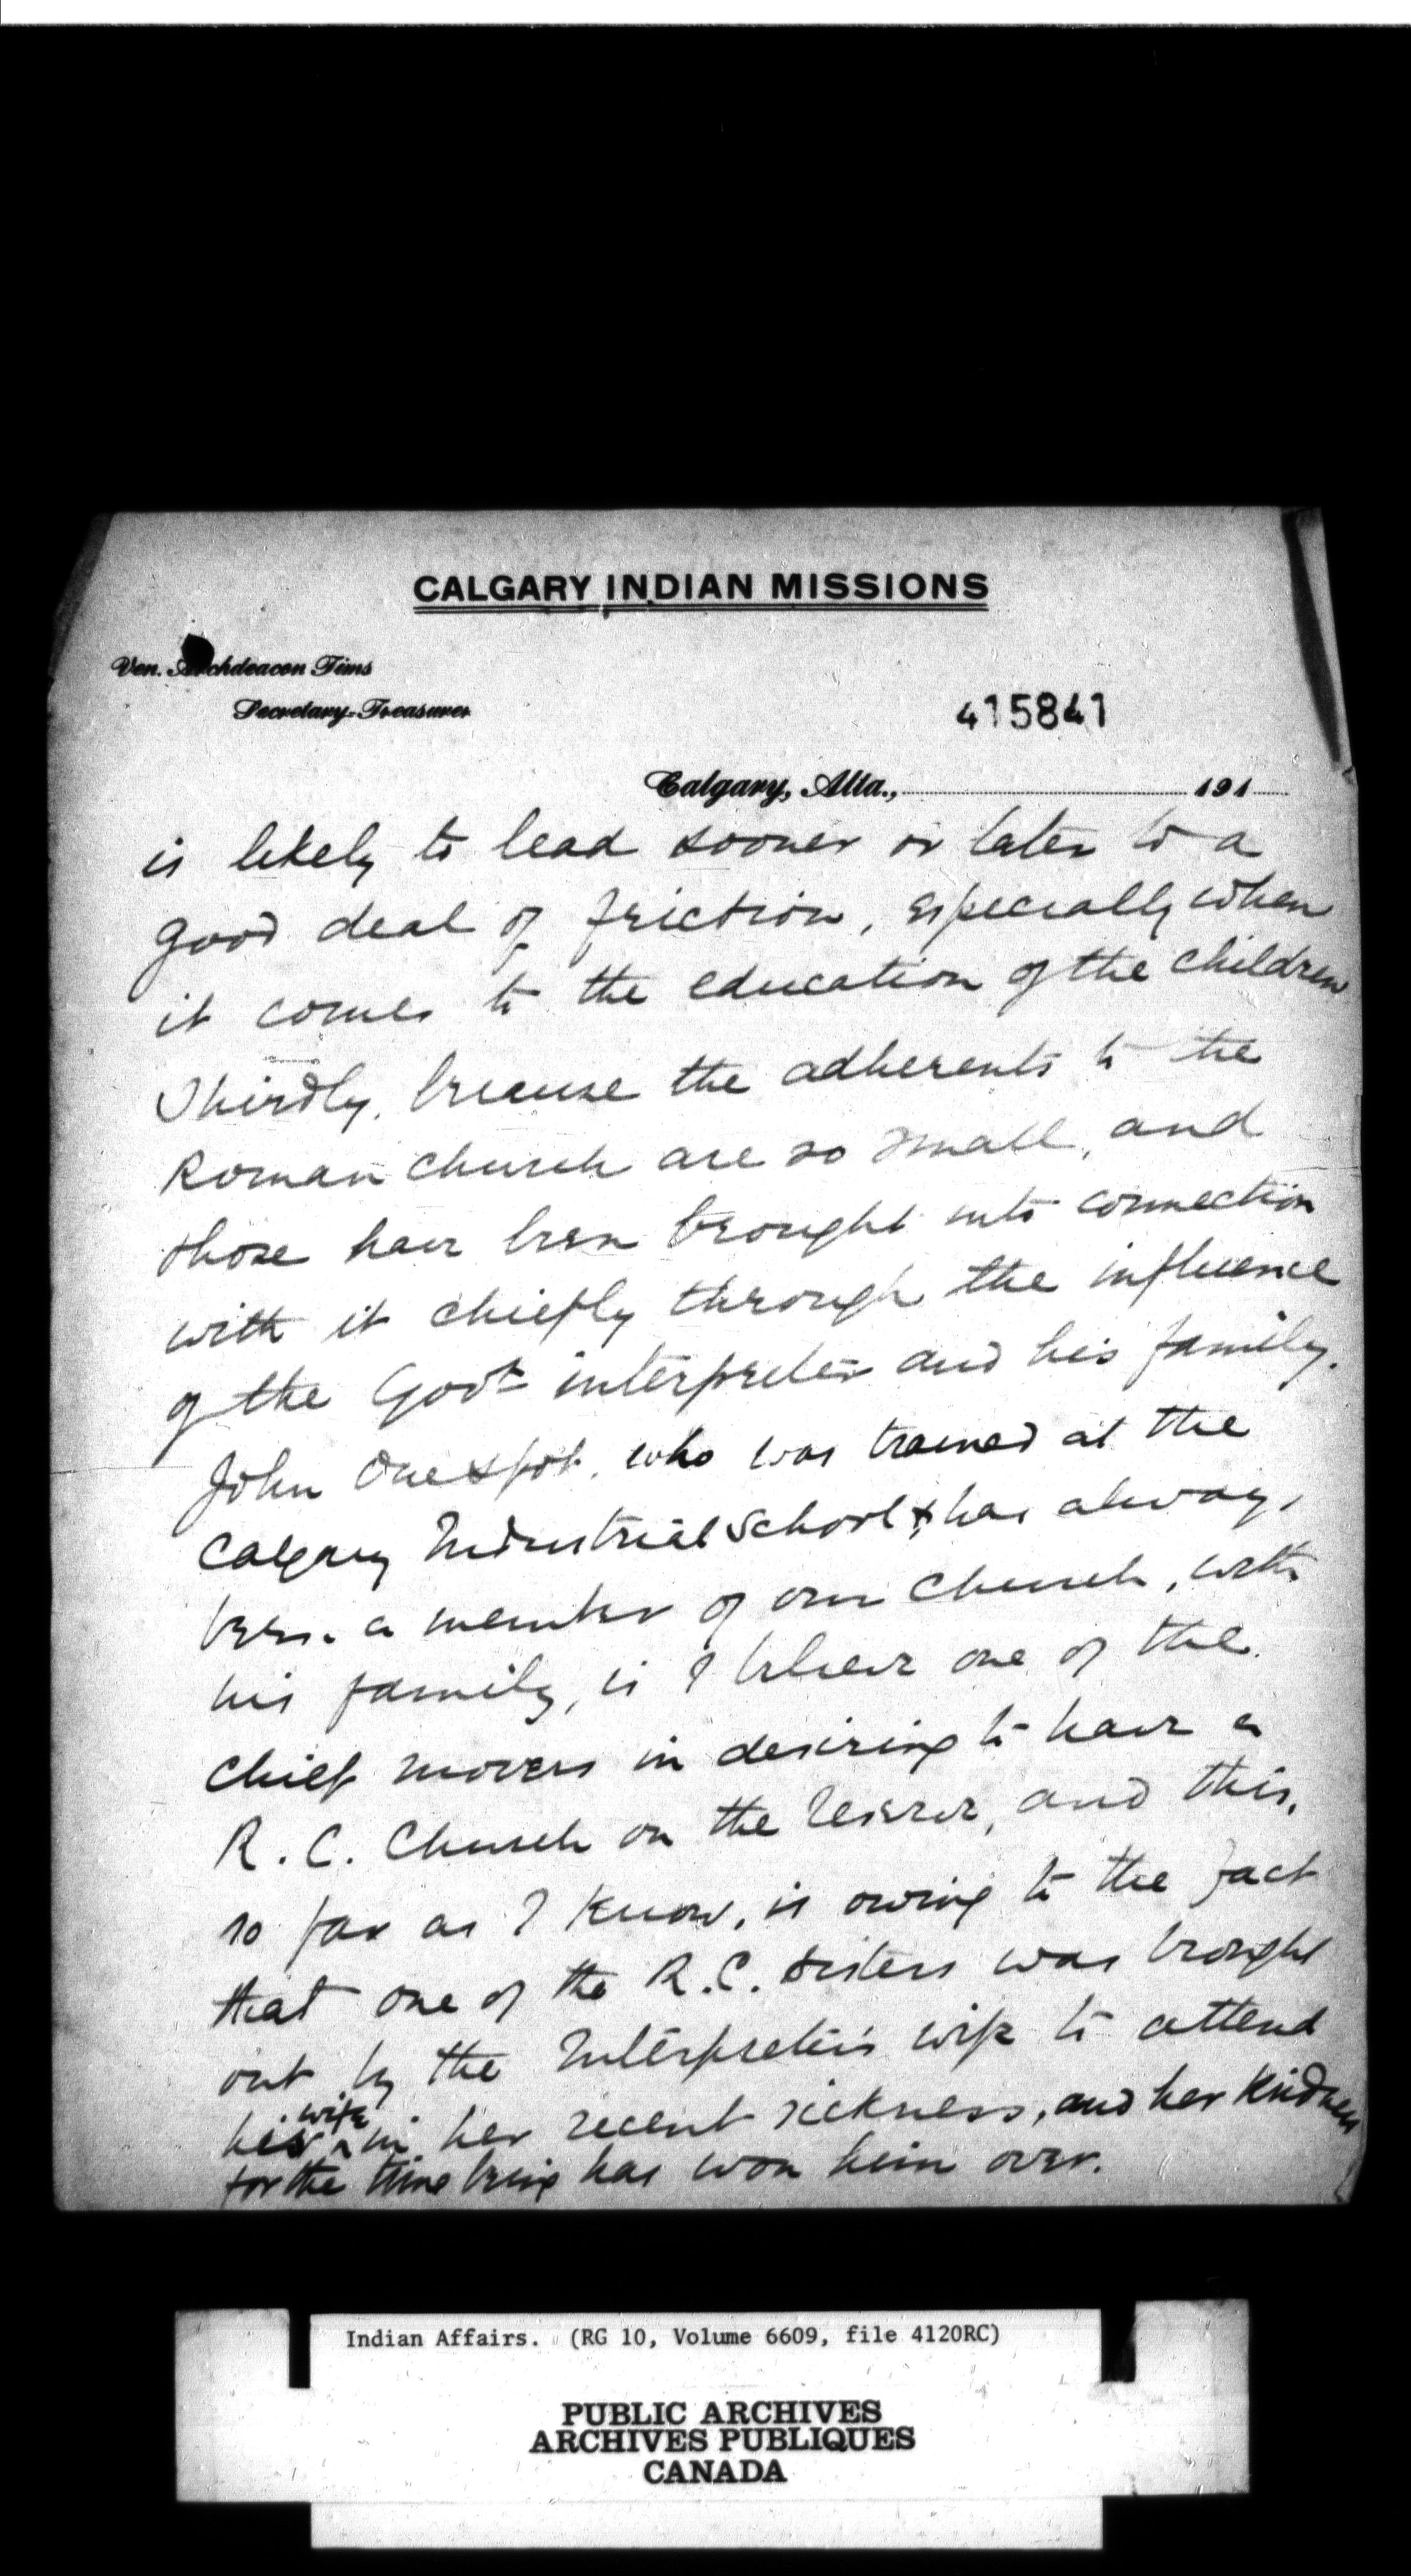 CALGARY INDIAN MISSIONS
Ven. Archdeacon Tims
Secretary-Treasurer
415841
Calgary, Alta., 191
is likely to lead sooner or later to a
good deal of friction, especially when
it comes to the education of the children
Thirdly, because the adherents to the
Roman Church are so small, and
those have been brought into connection
with it chiefly through the influence
of the Govt interpreter and his family.
John Onespot, who was trained at the
Calgary Industrial School & has always
been a member of our Church, with
his family, is I believe one of the
chief movers in desiring to have a
R. C. Church on the Reserve, and this,
so far as I know, is owing to the fact
that one of the R. C. Sisters was brought
out by the Interpreter's wife to attend
his wife in her recent sickness, and her kindness
for the time being has won him over.
Indian Affairs. (RG 10, Volume 6609, file 4120RC)
PUBLIC ARCHIVES
ARCHIVES PUBLIQUES
CANADA